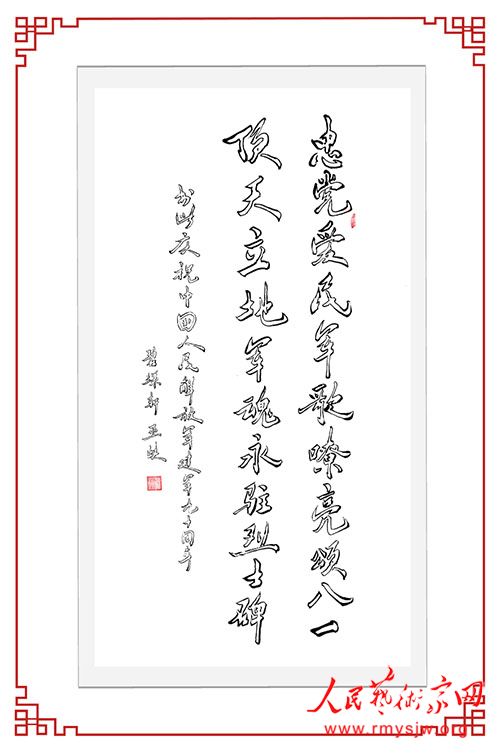 忠党爱民军歌嘹亮颂八一
顶天立地军魂永驻烈士碑
书此庆祝中国人民解放军建军九十周年
人民藝術家网
www.rmysjw.org